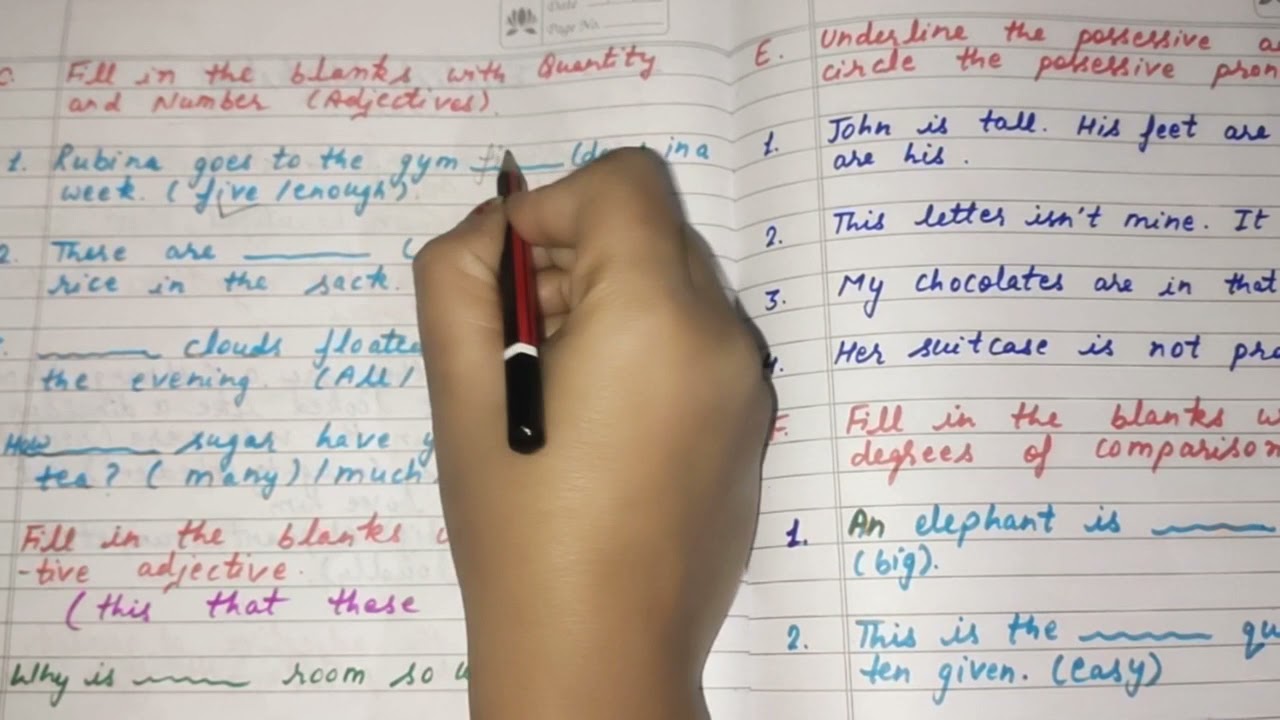 Date
Page No.
C. Fill in the blanks with Quantity
and Number (Adjectives).
1. Rubina goes to the gym in a
week. (five/enough)
2. There are
rice in the sack.
clouds
the evening. (All/
How sugar have
tea? (many)/much
Fill in the blanks
-tive adjective.
(this that these
Why is room so
E. Underline the possessive
circle the possessive
1. John is tall. His feet are
are his.
2. This letter isn't mine. It
3. My chocolates are in that
4. Her suitcase is not
F. Fill in the blanks
degrees of comparison
1. An elephant is
(big).
2. This is the
ten given. (easy)